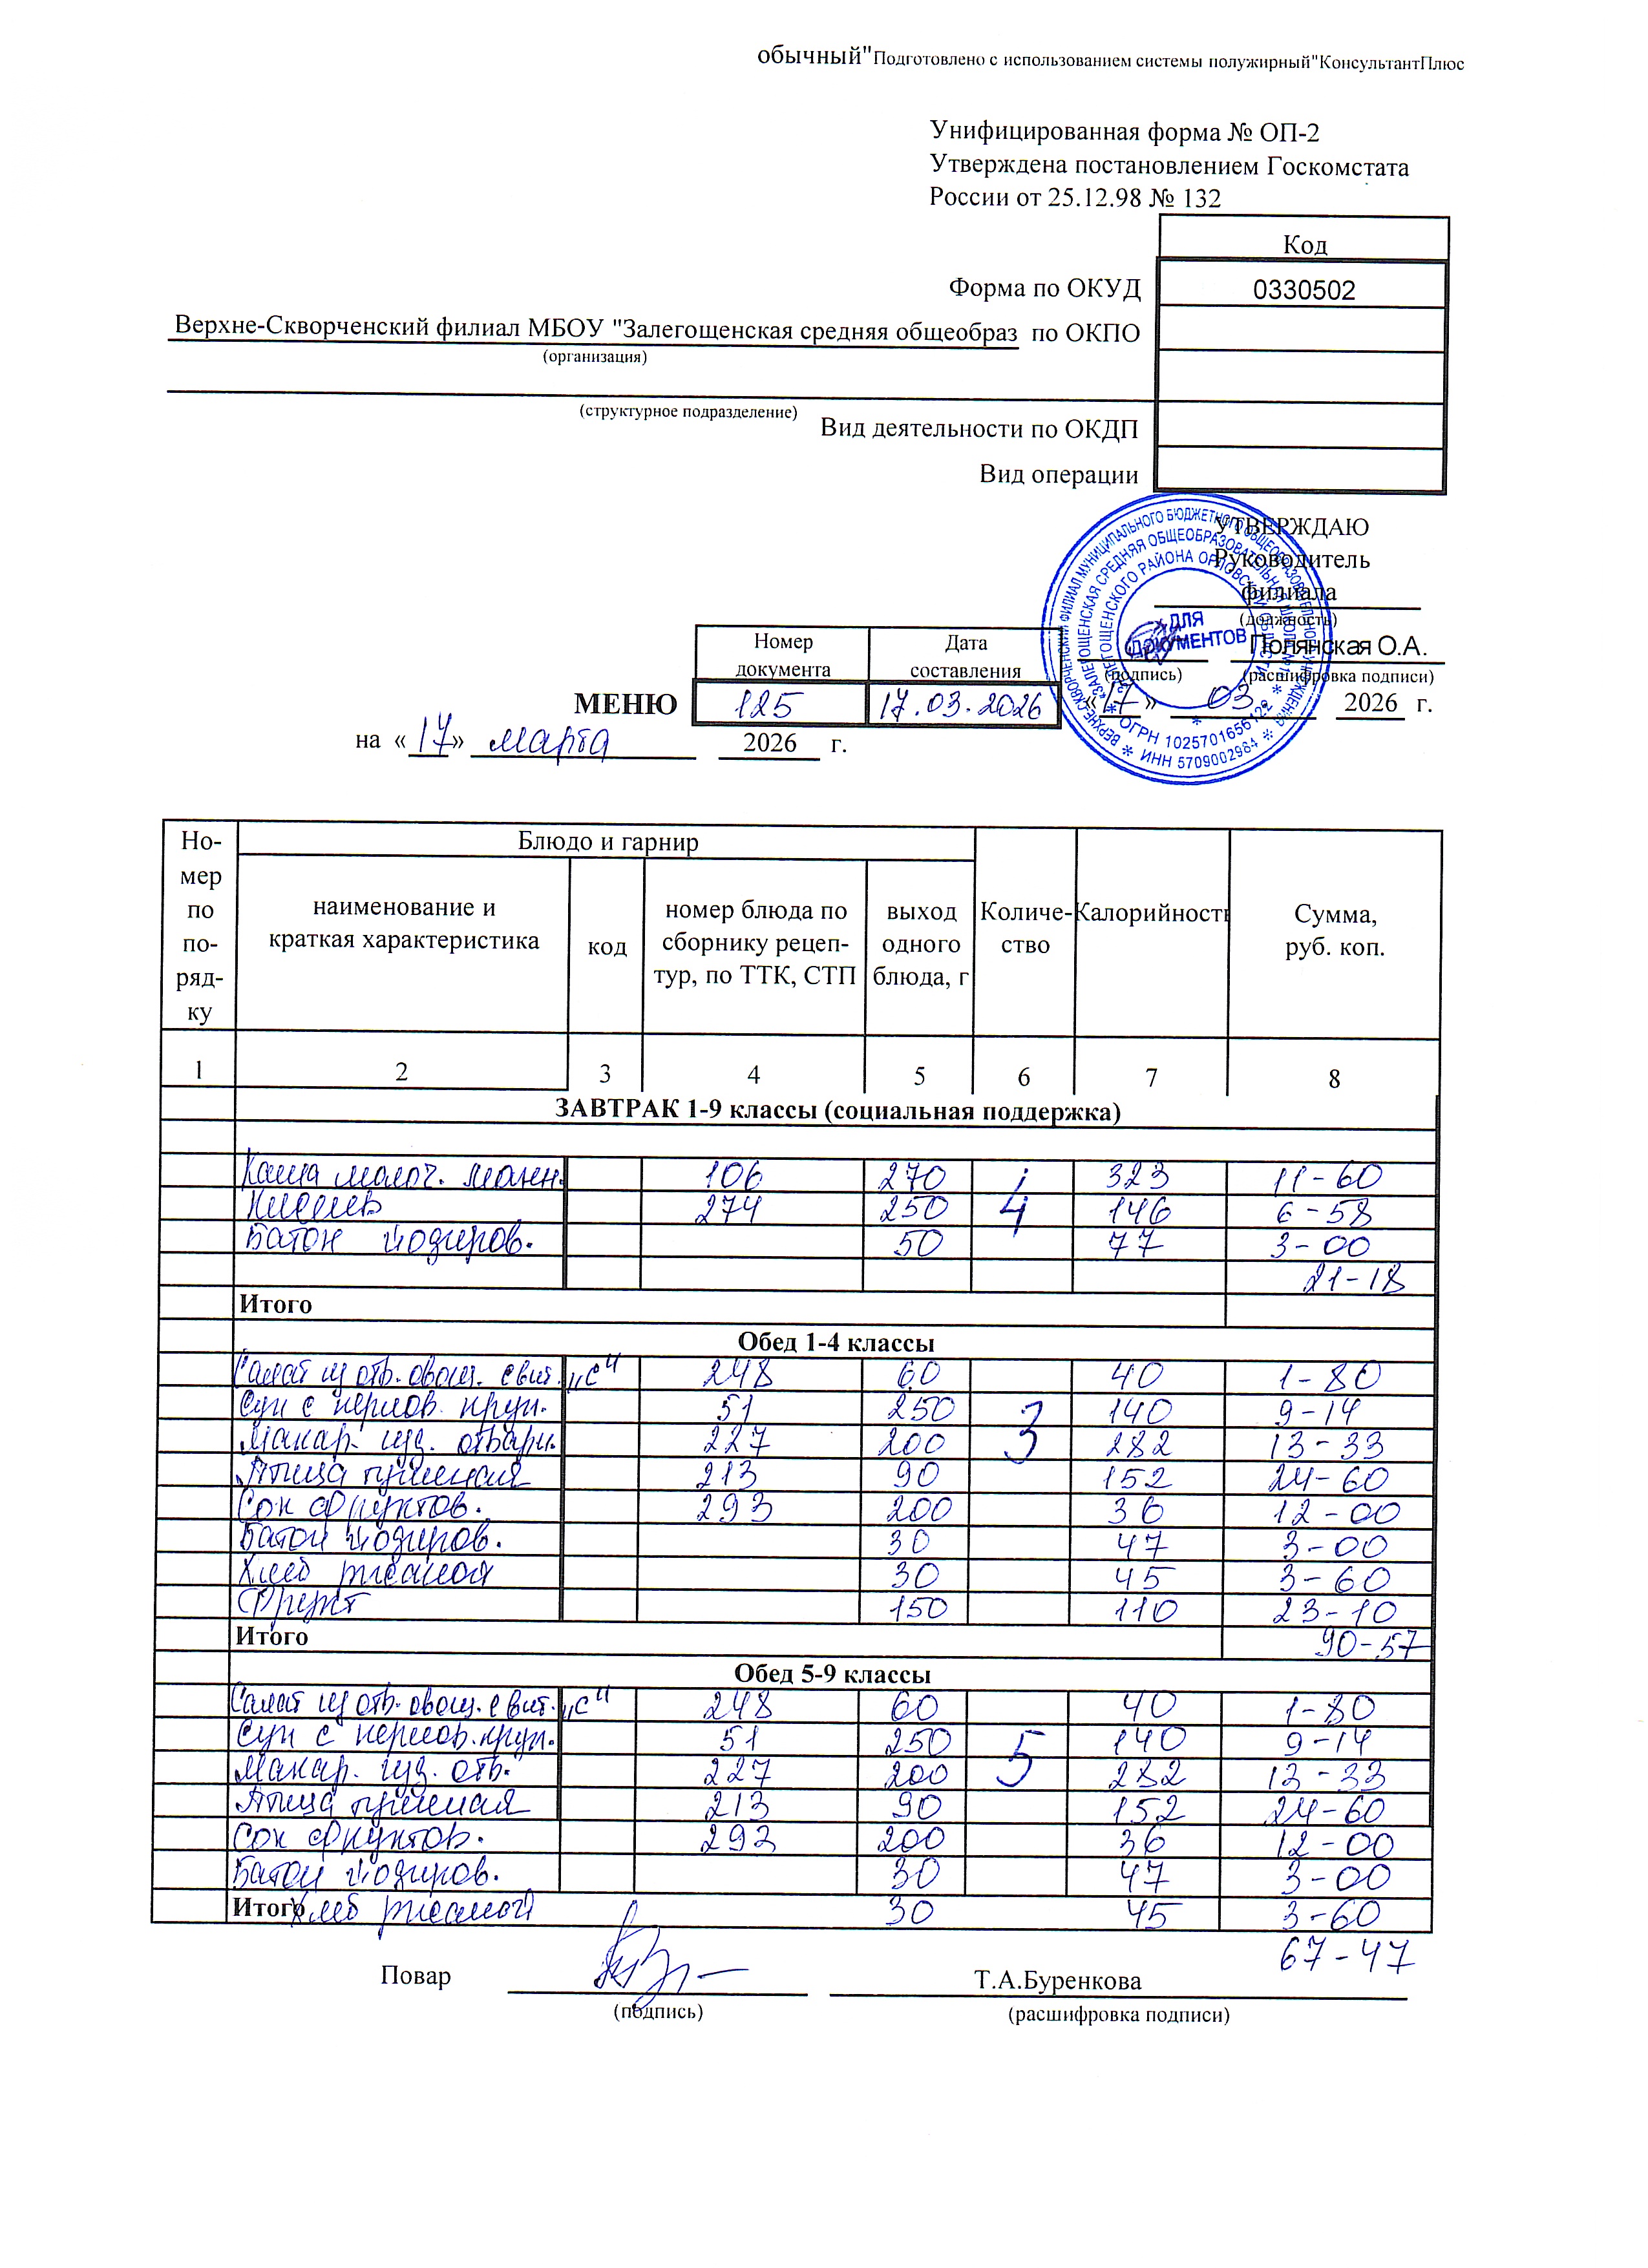 обычный"Подготовлено с использованием системы полужирный"КонсультантПлюс
Унифицированная форма № ОП-2
Утверждена постановлением Госкомстата
России от 25.12.98 № 132
Код
Форма по ОКУД 0330502
Верхне-Скворченский филиал МБОУ "Залегощенская средняя общеобраз по ОКПО
(организация)
(структурное подразделение)
Вид деятельности по ОКДП
Вид операции
УТВЕРЖДАЮ
Руководитель
филиала
(должность)
Полянская О.А.
(подпись) (расшифровка подписи)
«17» 03 2026 г.
ДЛЯ ДОКУМЕНТОВ
ОГРН 1025701656122
ИНН 5709002984
Номер документа Дата составления
МЕНЮ 125 17.03.2026
на «17» марта 2026 г.
Но-мер по по-ряд-ку Блюдо и гарнир Количе-ство Калорийность Сумма, руб. коп.
наименование и краткая характеристика код номер блюда по сборнику рецеп-тур, по ТТК, СТП выход одного блюда, г
1 2 3 4 5 6 7 8
ЗАВТРАК 1-9 классы (социальная поддержка)
Каша молоч. манн. 106 270 323 11-60
Кисель 274 250 4 146 6-58
Батон йодиров. 50 77 3-00
21-18
Итого
Обед 1-4 классы
Салат из отв. овощ. с вит. „С" 248 60 40 1-80
Суп с перлов. круп. 51 250 3 140 9-14
Макар. изд. отварн. 227 200 282 13-33
Птица тушеная 213 90 152 24-60
Сок фруктов. 293 200 36 12-00
Батон йодиров. 30 47 3-00
Хлеб ржаной 30 45 3-60
Фрукт 150 110 23-10
Итого 90-57
Обед 5-9 классы
Салат из отв. овощ. с вит. „С" 248 60 40 1-80
Суп с перлов. круп. 51 250 5 140 9-14
Макар. изд. отв. 227 200 282 13-33
Птица тушеная 213 90 152 24-60
Сок фруктов. 293 200 36 12-00
Батон йодиров. 30 47 3-00
Итого Хлеб ржаной 30 45 3-60
67-47
Повар Т.А.Буренкова
(подпись) (расшифровка подписи)